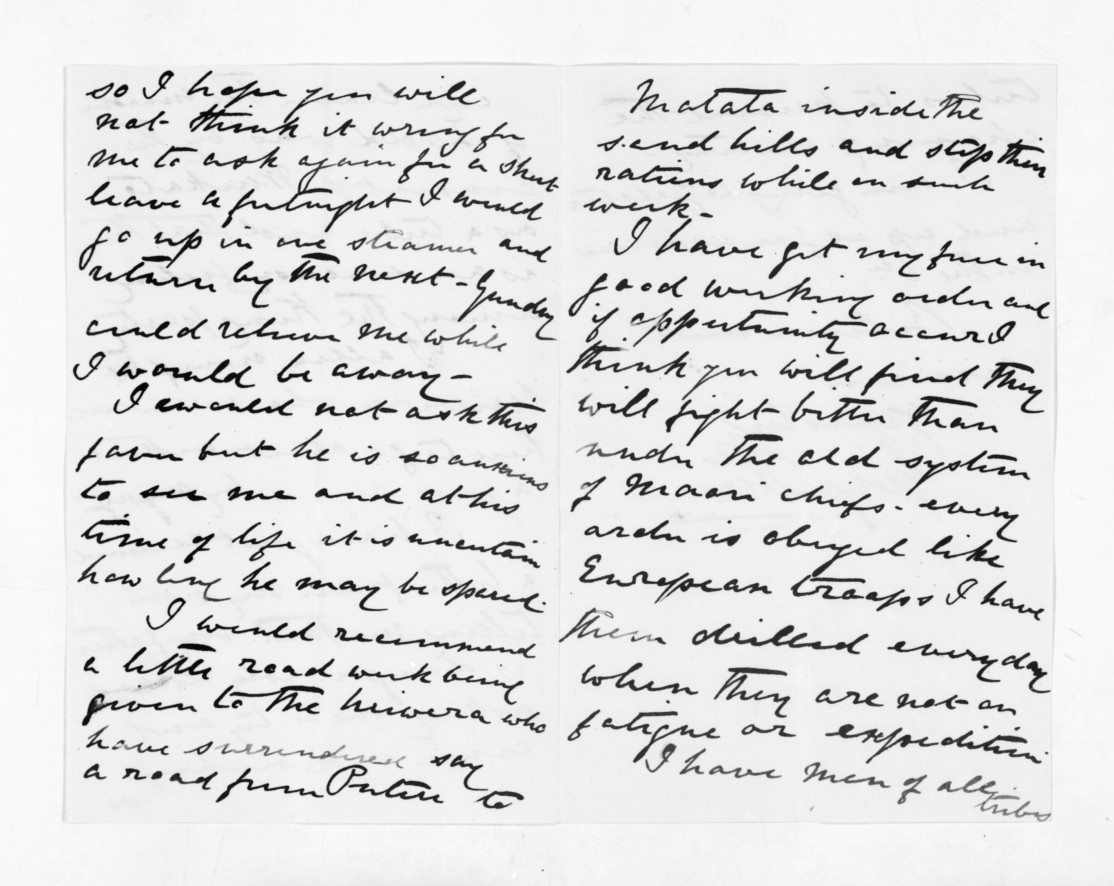 so I hope you will
not think it wrong for
me to ask again for a short
leave a fortnight I would
go up in one steamer and
return by the next - Gundry
could relieve me while
I would be away -
I would not ask this
favor but he is so anxious
to see me and at his
time of life it is uncertain
how long he may be spared.
I would recommend
a little road work being
given to the Uriwera who
have surrendered say
a road from Putere to
Matata inside the
sand hills and stop their
rations while on such
work -
I have got my force in
good working order and
if oppertunity occurs I
think you will find they
will fight better than
under the old system
of Maori chiefs - every
order is obeyed like
European troops I have
them drilled everyday
when they are not on
fatigue or expedition.
I have men of all
tribes